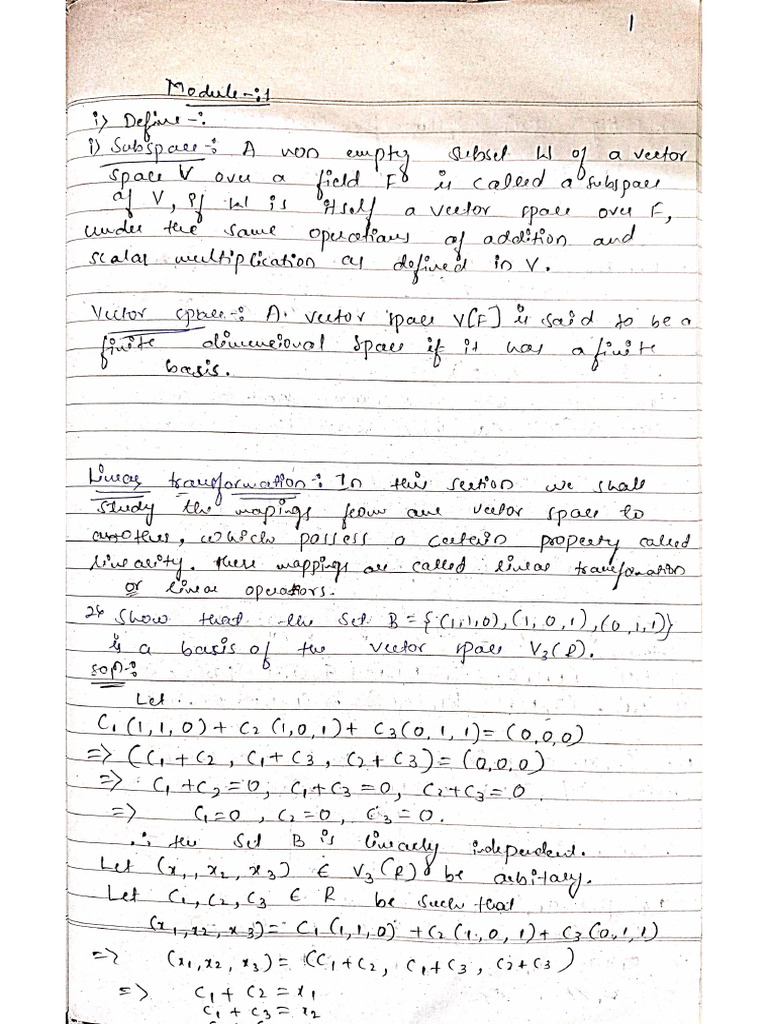 1
Module-:1
i) Define-:
i) Subspace-: A non empty subset W of a vector
space V over a field F is called a subspace
of V, if W is itself a vector space over F,
under the same operations of addition and
scalar multiplication as defined in V.
Vector space-: A. vector space V[F] is said to be a
finite dimensional space if it has a finite
basis.
Linear transformation-: In this section we shall
study the mapings from one vector space to
another, which possess a certain property called
linearity. These mappings are called linear transformation
or linear operators.
Show that the set B = {(1,1,0), (1,0,1), (0,1,1)}
is a basis of the vector space V₃(R).
sol-:
Let
C₁(1,1,0) + C₂(1,0,1) + C₃(0,1,1) = (0,0,0)
=> (C₁ + C₂, C₁ + C₃, C₂ + C₃) = (0,0,0)
=> C₁ + C₂ = 0, C₁ + C₃ = 0, C₂ + C₃ = 0
=> C₁ = 0, C₂ = 0, C₃ = 0.
∴ the set B is linearly independent.
Let (x₁, x₂, x₃) ∈ V₃(R) be arbitary.
Let C₁, C₂, C₃ ∈ R be such that
(x₁, x₂, x₃) = C₁(1,1,0) + C₂(1,0,1) + C₃(0,1,1)
=> (x₁, x₂, x₃) = (C₁ + C₂, C₁ + C₃, C₂ + C₃)
=> C₁ + C₂ = x₁
C₁ + C₃ = x₂